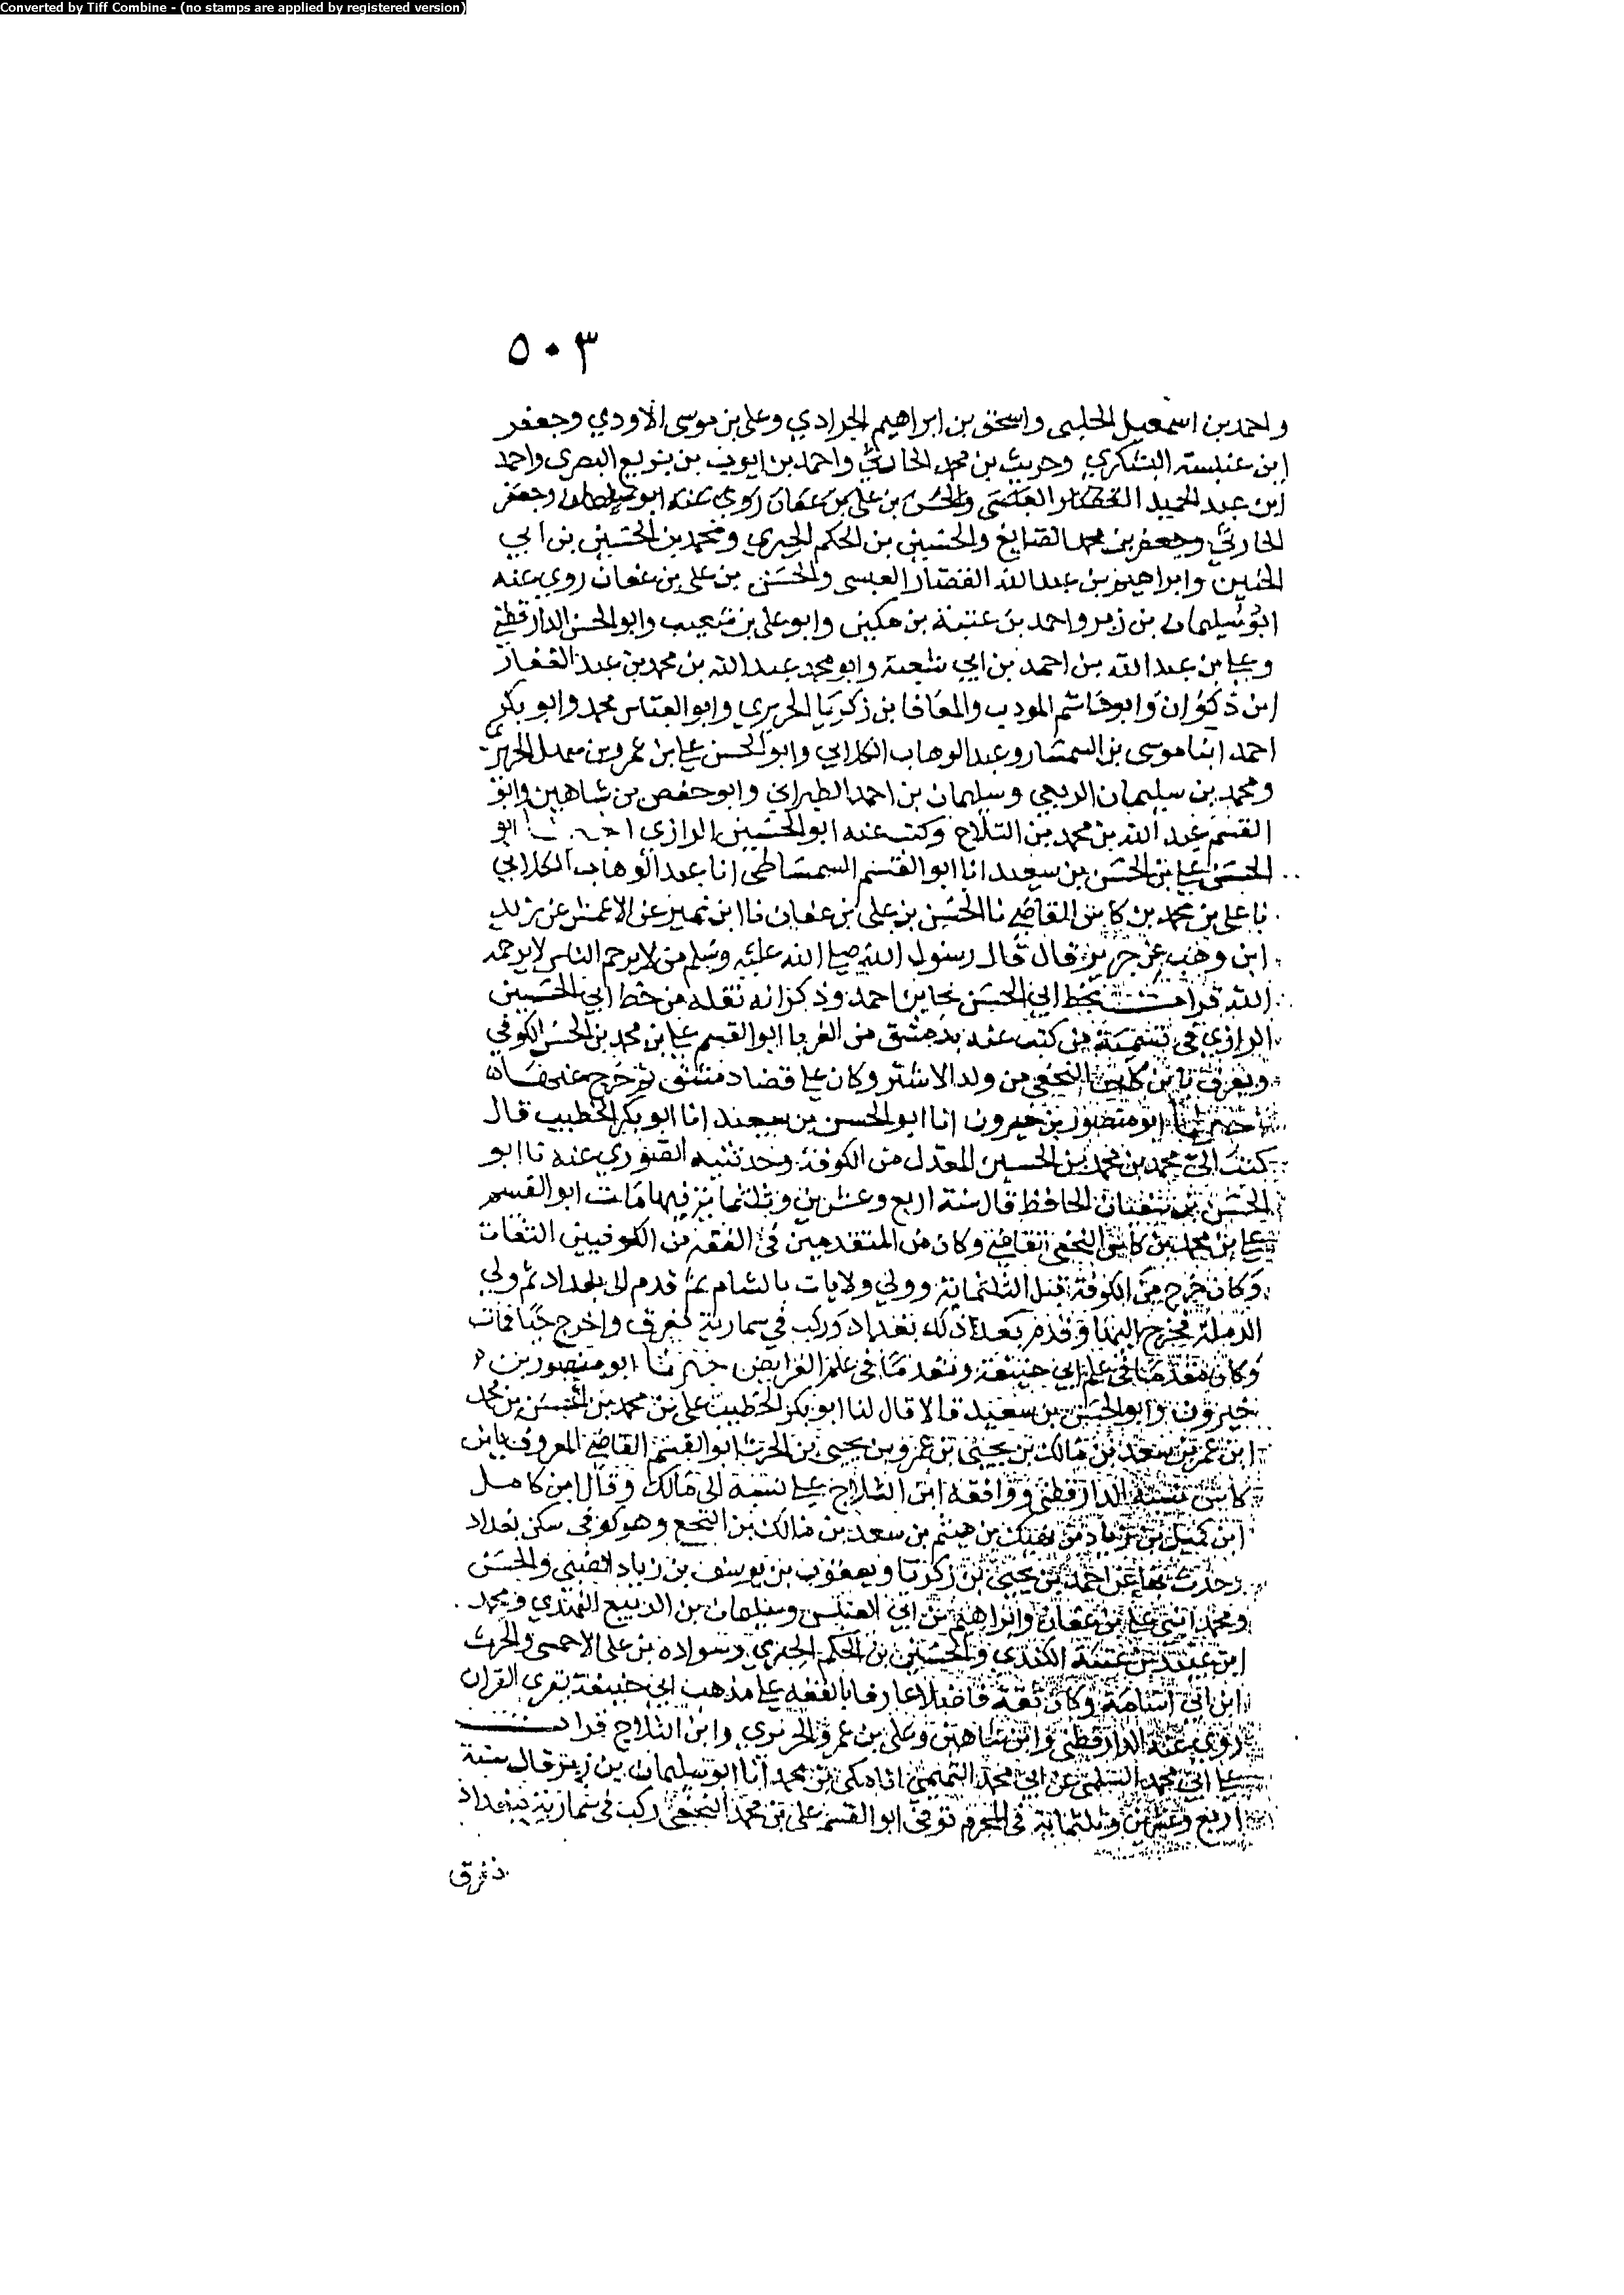 Converted by Tiff Combine - (no stamps are applied by registered version)
٥٠٣
واحمد بن اسمعيل الحلبى واسحق بن ابراهيم الجرادي وعلى بن موسى الاودي وجعفر
ابن عنبسة اليشكري وحريث بن محمد الحارثي واحمد بن ايوب بن بزيع البصرى واحمد
ابن عبد الحميد العبسى والحسن بن على بن عفان روي عنه وجعفر
الحارثي وجعفر بن محمد الصايغ والحسين بن الحكم الحبري ومحمد بن الحسين بن ابي
الحنين وابراهيم بن عبد الله القصار العبسى والحسن بن على بن عفان روي عنه
ابو سليمان بن زبر واحمد بن عتبة بن مكين وابو على بن شعيب وابو الحسن الدارقطني
وعلي بن عبد الله بن احمد بن ابي شعبة وابو محمد عبد الله بن محمد بن عبد الغفار
ابن ذكوان وابو هاشم المودب والمعافا بن زكريا الجريري وابو العباس محمد وابو بكر
احمد ابنا موسى بن السمسار وعبد الوهاب الكلابي وابو الحسن علي بن عمرو بن سهل الحريري
ومحمد بن سليمان الربعي وسليمان بن احمد الطبراني وابو حفص بن شاهين وابو
القسم عبد الله بن محمد بن الثلاج وكتب عنه ابو الحسين الرازي ابو
الحسن علي بن الحسن بن سعيد انا ابو القسم السمساطى انا عبد الوهاب الكلابي
نا على بن محمد بن كاس القاضي نا الحسن بن على بن عفان نا ابن نمير عن الاعمش عن زيد
ابن وهب عن جرير قال قال رسول الله صلى الله عليه وسلم من لا يرحم الناس لا يرحمه
الله قرات بخط ابي الحسن نجا بن احمد وذكر انه نقله من خط ابي الحسين
الرازي فى تسمية من كتب عنه بدمشق من الغربا ابو القسم علي بن محمد بن الحسن الكوفي
ويعرف بابن كاس النخعي من ولد الاشتر وكان على قضا دمشق ثم خرج عنها
اخبرنا ابو منصور بن خيرون انا ابو الحسن بن سعيد انا ابو بكر الخطيب قال
كتب الي محمد بن محمد بن الحسين المعدل من الكوفة وحدثنيه الصوري عنه نا ابو
الحسن بن سفيان الحافظ قال سنة اربع وعشرين وثلثماية فيها مات ابو القسم
علي بن محمد بن كاس النخعي القاضي وكان من المتقدمين في الفقه من الكوفيين الثقات
وكان خرج من الكوفة قبل الثلثماية وولي ولايات بالشام ثم قدم الى بغداد ثم ولي
الرملة فخرج اليها وقدم بعد ذلك بغداد وركب في سمارية فغرق واخرج حيا فمات
وكان مقدما فى علم ابي حنيفة ومتقدما فى علم الفرايض اخبرنا ابو منصور بن
خيرون وابو الحسن بن سعيد قالا قال لنا ابو بكر الخطيب على بن محمد بن الحسن بن محمد
ابن عمر بن سعد بن مالك بن يحيى بن عمرو بن يحيى بن الحرث ابو القسم القاضي المعروف بابن
كاس نسبه الدارقطني ووافقه ابن الثلاج على نسبه الى مالك وقال ابن كامل
ابن كميل بن زياد بن نهيك بن هيثم بن سعد بن مالك بن النخع وهو كوفى سكن بغداد
وحدث بها عن احمد بن يحيى بن زكريا ويعقوب بن يوسف بن زياد الضبي والحسن
ومحمد ابني علي بن عفان وابراهيم بن ابي العنبس وسليمان بن الربيع النهدي ومحمد
ابن عبيد بن عتبة الكندي والحسين بن الحكم الحبري وسواده بن على الاحمسى والحرث
ابن ابي اسامة وكان ثقة فاضلا عارفا بالفقه على مذهب ابي حنيفة يقرى القران
روى عنه الدارقطني وابن شاهين وعلى بن عمرو الحريري وابن الثلاج قرات
على ابي محمد السلمي عن ابي محمد التميمي انا مكي بن محمد انا ابو سليمان بن زبر قال سنة
اربع وعشرين وثلثماية في المحرم توفي ابو القسم على بن محمد النخعي ركب فى سمارية ببغداد
فغرق